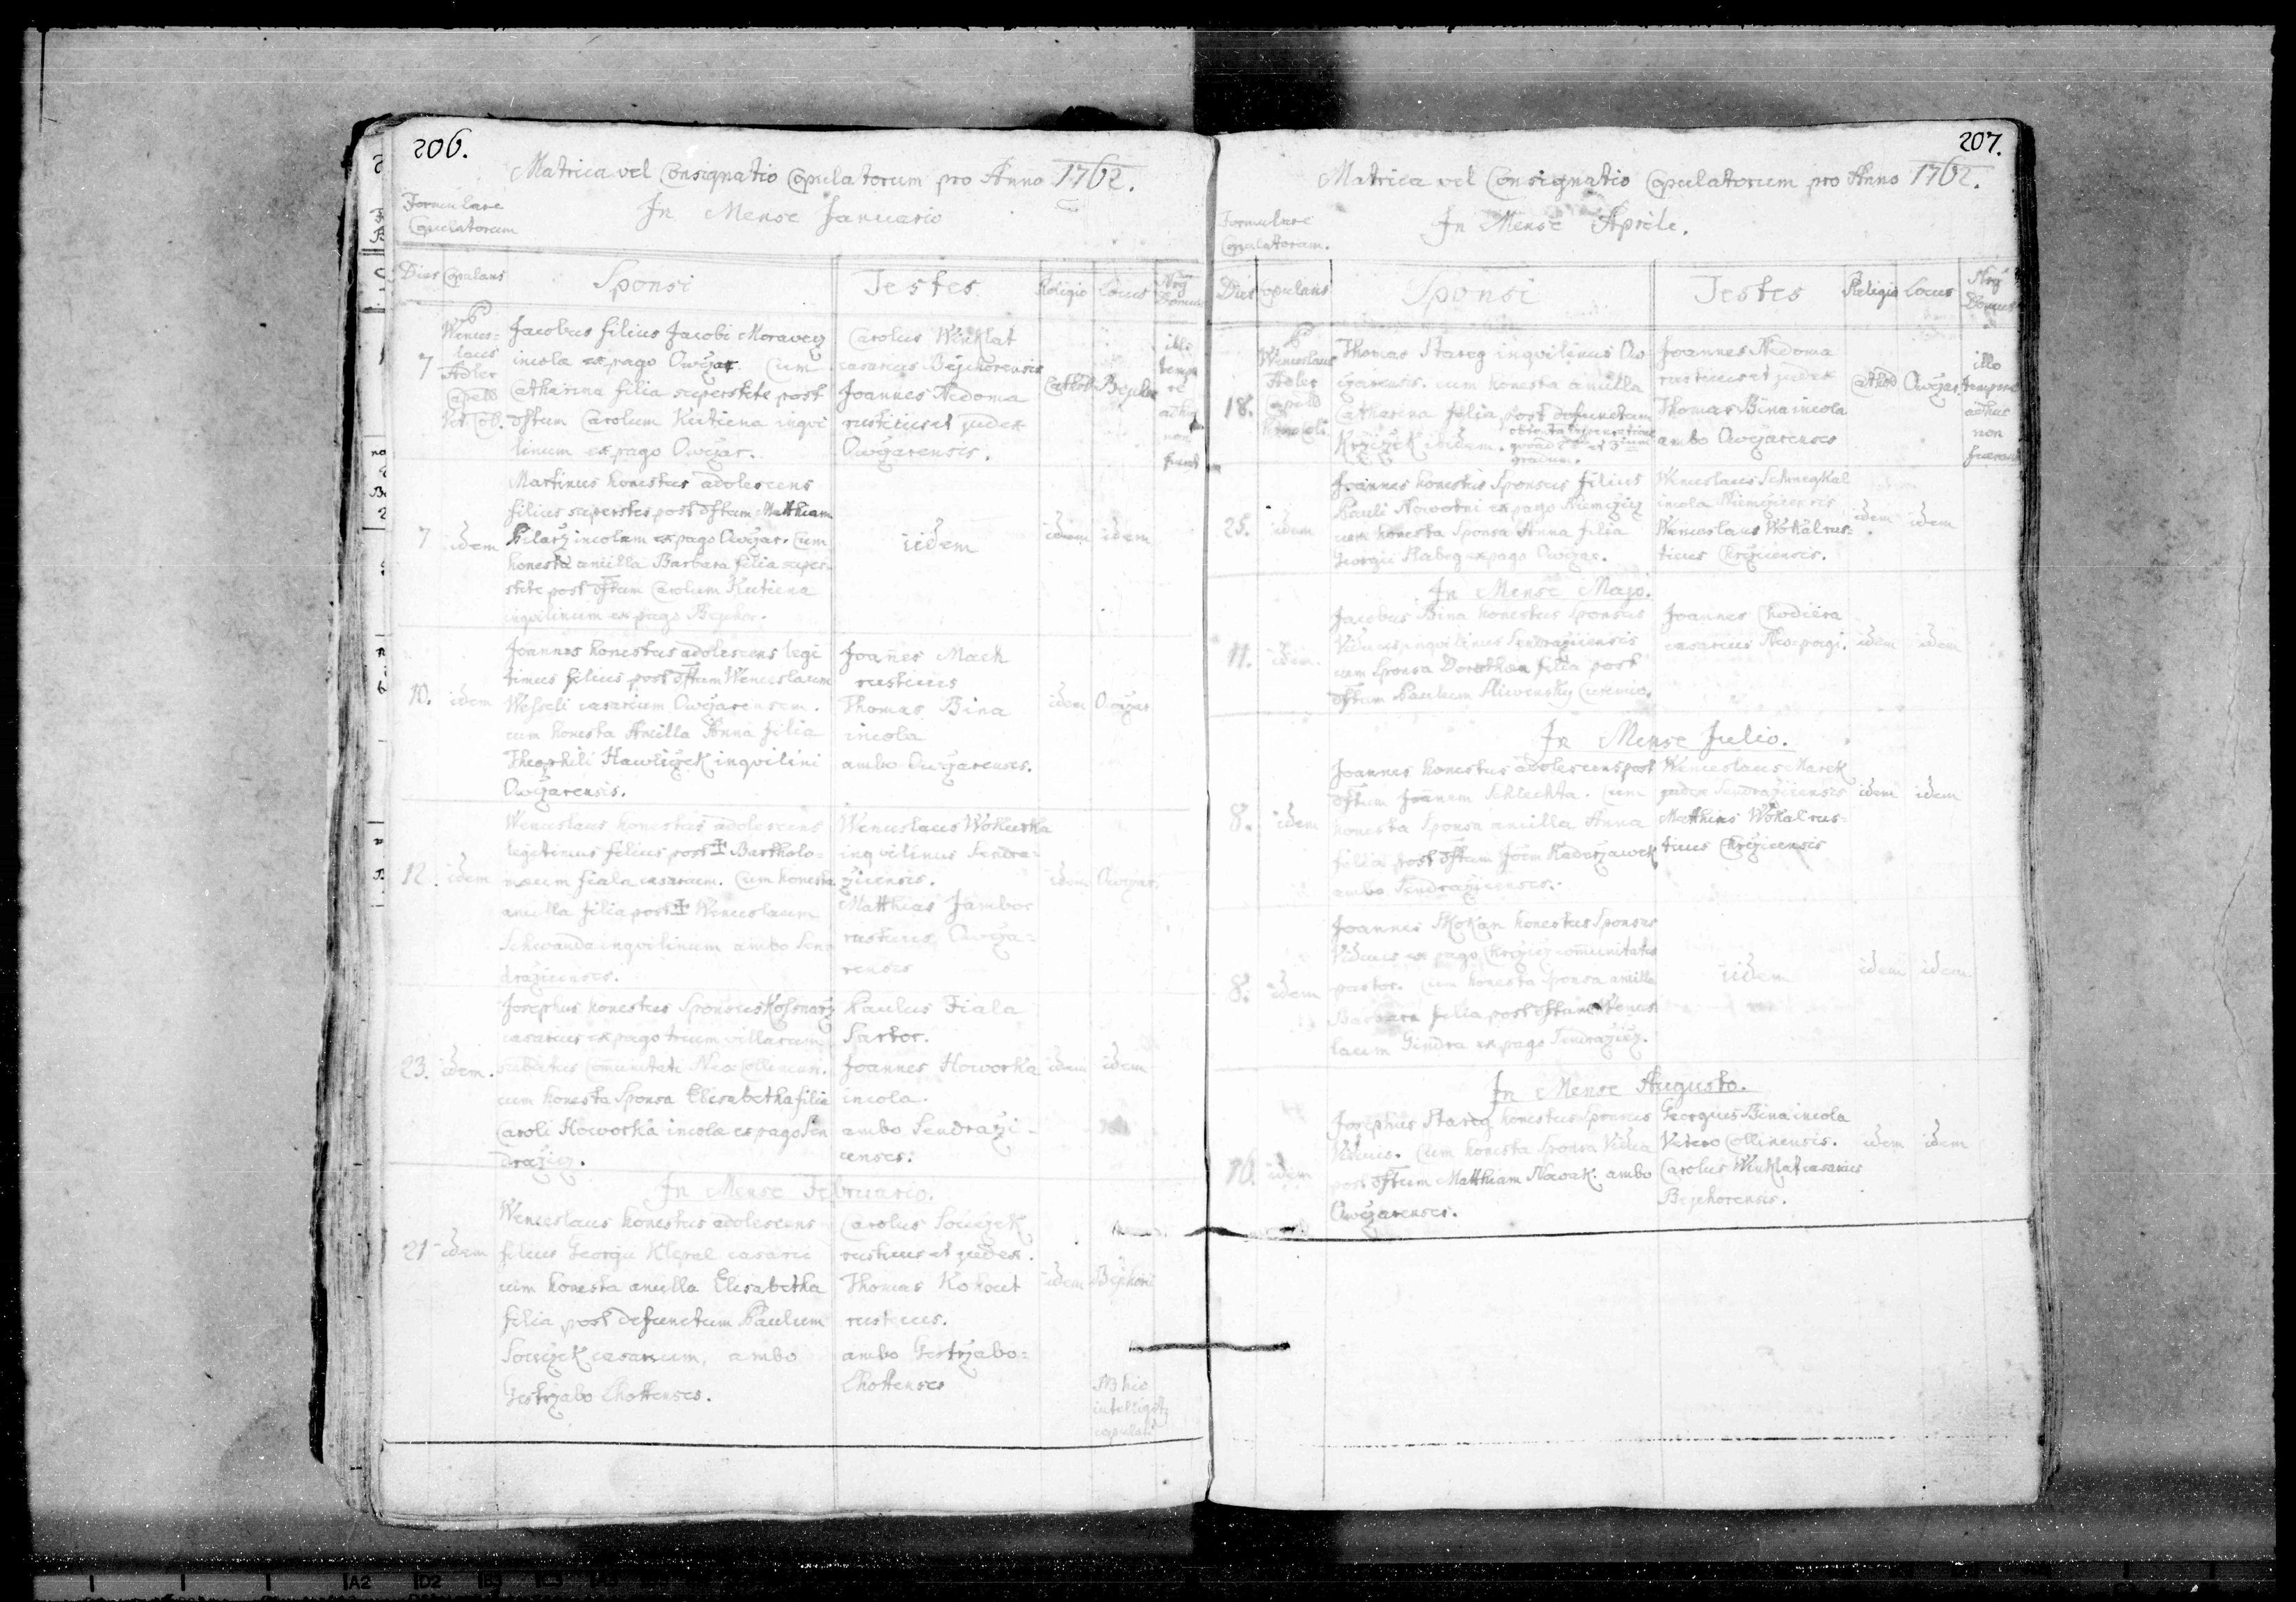 206.
Matrica vel Consignatio Copulatorum pro Anno 1762.
Formulare
Copulatorum
In Mense Januario
Dies Copulans Sponsi Testes Religio Locus Nrg Domus
P
Wences=
laus
Adler
Capell
Vet. Col.
7
Jacobus filius Jacobi Moravecz
incolæ ex pago Owczar. Cum
Catharina filia superstite post
dftum Carolum Kutiena inqvi
linum ex pago Owczar.
Carolus Winklat
casarius Bejchorensis
Joannes Nedoma
rusticus et judex
Owczarensis.
Cathol Bejchor
illo
tempo
re
adhuc
non
fuerat
7 idem
Martinus honestus adolescens
filius superstes post dftum Matthiam
Pilarz incolam ex pago Owczar. Cum
honesta ancilla Barbara filia super=
stite post dftum Carolum Kutiena
inqvilinum ex pago Bejchor.
iidem
idem idem
10. idem
Joannes honestus adolescens legi
timus filius post dftum Wenceslaum
Wesseli casarium Owczarensem.
cum honesta Ancilla Anna filia
Theophili Hawliczek inqvilini
Owczarensis.
Joannes Mach
rusticus
Thomas Bina
incola
ambo Owczarenses.
idem Owczar
12. idem
Wenceslaus honestus adolescens
legitimus filius post ‡ Bartholo=
mæum fiala casarium. Cum honesta
ancilla filia post ‡ Wenceslaum
Schwanda inqvilinum ambo Sen
drazicenses.
Wenceslaus Wokurka
inqvilinus Sendra=
ziicensis.
Matthias Jambor
rusticus Owcza=
rensis
idem Owczar.
23. idem.
Josephus honestus Sponsus Kossnarz
casarius ex pago trium villarum
subditus Comunitati Neo Collinensi.
cum honesta Sponsa Elisabetha filia
Caroli Howorka incolæ ex pago Sen
drazicz.
Paulus Fiala
Sartor.
Joannes Howorka
incola.
ambo Sendrazi-
censes.
idem idem
In Mense Februario.
21 idem
Wenceslaus honestus adolescens
filius Georgii Klepal casarii
cum honesta ancilla Elisabetha
filia post defunctum Paulum
Souczek casarium, ambo
Gestrzabo Lhottenses.
Carolus Souczek
rusticus et judex.
Thomas Kohout
rusticus.
ambo Gestrzabo=
Lhottenses
idem Bejchori
NB hic
intelligitr
copulati
207.
Matrica vel Consignatio Copulatorum pro Anno 1762.
Formulare
Copulatorum.
In Mense Aprile.
Dies Copulans Sponsi Testes Religio Locus Nrg Domus
P
Wenceslaus
Adler
Capell
18.
Thomas Stareg inqvilinus Ow
czarensis. cum honesta ancilla
Catharina filia post defunctum
Krziczek ibidem. obtenta dispensatione
quoad 2dum et 3tium
gradum.
Joannes Nedoma
rusticus et judex
Thomas Bina incola
ambo Owczarenses
Cathol Owczar.
illo
tempore
adhuc
non
fuerant
25. idem
Joannes honestus Sponsus filius
Pauli Nowotni ex pago Niemczicz
cum honesta Sponsa Anna filia
Georgii Slabeg ex pago Owczar.
Wenceslaus
incola Niemczicensis
Wenceslaus Wokal rus=
ticus Krziicensis.
idem idem
In Mense Majo.
11. idem
Jacobus Bina honestus Sponsus
Viduus inqvilinus Sendraziicensis
cum Sponsa Dorothea filia post
dftum Paulum Sliwensky
Joannes Chodiera
casarius
idem idem
In Mense Julio.
8. idem
Joannes honestus adolescens post
dftum Joannem Schlechta. Cum
honesta Sponsa ancilla Anna
filia post dftum Joem Kaderzawek
ambo Sendraziicenses.
Wenceslaus Marek
judex Sendraziicensis
Matthias Wokal rus=
ticus Krziicensis
idem idem
8. idem
Joannes Skokan honestus Sponsus
Viduus ex pago Krziicz comunitatis
pastor. Cum honesta Sponsa ancilla
Barbara filia post dftum Wences
laum Gindra ex pago Sendrazicz.
iidem
idem idem
In Mense Augusto.
16. idem
Josephus Stareg honestus Sponsus
Viduus. Cum honesta Sponsa Vidua
post dftum Matthiam Nowak. ambo
Owczarenses.
Georgius Bina incola
Vetero Collinensis.
Carolus Winklat casarius
Bejchorensis.
idem idem